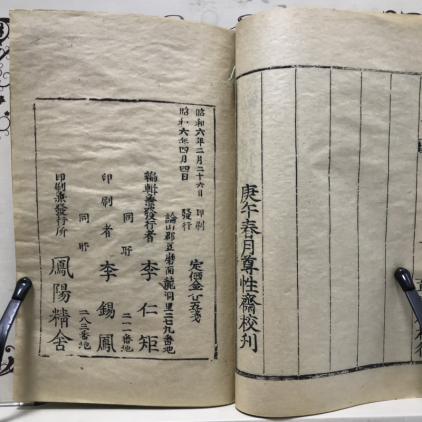 庚午春月尊性齋校刊
昭和六年二月二十六日 印刷
昭和六年四月四日 發行
定價金
論山郡豆磨面龍洞里二七九番地
編輯兼發行者 李仁矩
同所 二一一番地
印刷者 李錫鳳
同所 二八三番地
印刷兼發行所 鳳陽精舍